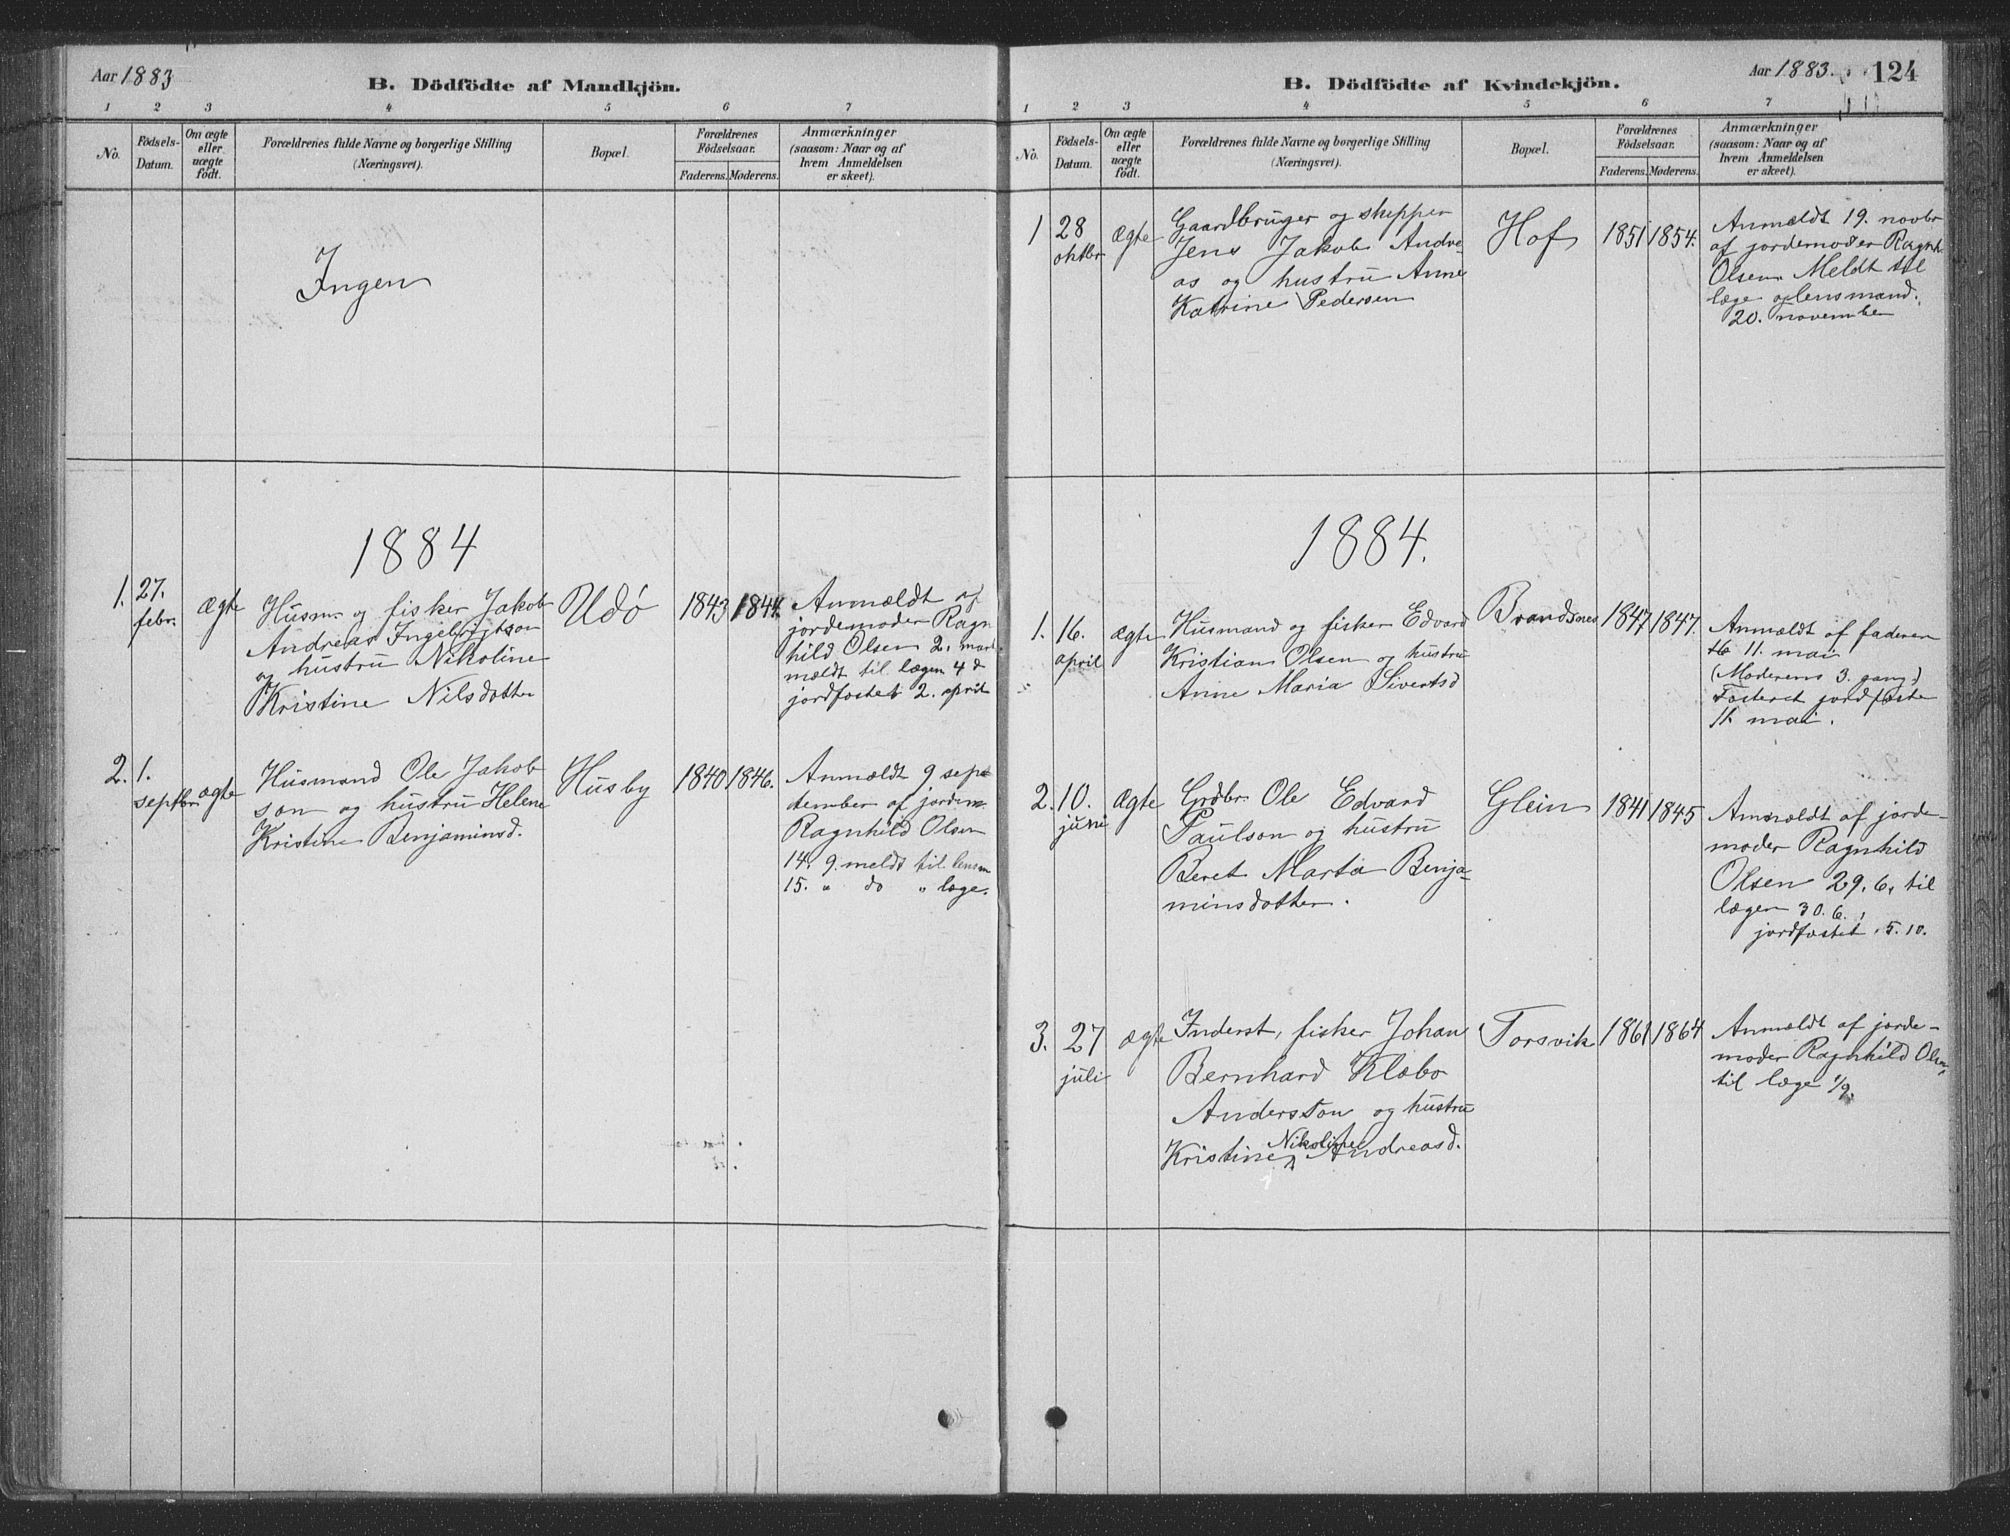 Aar 1883
B. Dödfödte af Mandkjön.
1 2 3 4 5 6 7
No.
Födsels-
Datum.
Om ægte
eller
uægte
födt.
Forældrenes fulde Navne og borgerlige Stilling
(Næringsvei).
Bopæl.
Forældrenes
Födselsaar.
Faderens. Moderens.
Anmærkninger
(saasom: Naar og af
hvem Anmeldelsen
er skeet).
Ingen
1884
1.
27.
febr.
ægte
Husm. og fisker Jakob
Andreas Ingebrigtson
og hustru Nikoline
Kristine Nilsdotter
Udö
1843
1844.
Anmældt af
jordemoder Ragn
hild Olsen 2. mart
mældt til lægen 4 d
jordfæstet 2. april
2.
1.
septbr.
ægte
Husmand Ole Jakob
son og hustru Helene
Kristine Benjaminsd.
Husby
1840
1846.
Anmældt 9 sep
tember af jordem.
Ragnhild Olsen
14. 9. meldt til lensm
15. " do " læge.
Aar 1883.
124
B. Dödfödte af Kvindekjön.
1 2 3 4 5 6 7
No.
Födsels-
Datum.
Om ægte
eller
uægte
födt.
Forældrenes fulde Navne og borgerlige Stilling
(Næringsvei).
Bopæl.
Forældrenes
Födselsaar.
Faderens. Moderens.
Anmærkninger
(saasom: Naar og af
hvem Anmeldelsen
er skeet).
1
28
oktbr
ægte
Gaardbruger og skipper
Jens Jakob Andre
as og hustru Anne
Katrine Pedersen
Hof
1851
1854.
Anmældt 19. novbr
af jordemoder Ragnh
Olsen Meldt til
læge og lensmand.
20. november
1884.
1.
16.
april
ægte
Husmand og fisker Edvard
Kristian Olsen og hustru
Anne Maria Sivertsd
Brandsnes
1847
1847.
Anmældt af faderen
11. mai
(Moderens 3. gang)
Fosteret jordfæste
11. mai.
2.
10.
juni
ægte
Grdbr. Ole Edvard
Paulson og hustru
Beret Marta Benja-
minsdotter.
Glein
1841
1845
Anmældt af jorde-
moder Ragnhild
Olsen 29. 6. til
lægen 30. 6.,
jordfæstet. 5. 10.
3.
27
juli
ægte
Inderst, fisker Johan
Bernhard Klæbo
Andersson og hustru
Nikoline
Kristine Andreasd.
Torsvik
1861
1864
Anmældt af jorde-
moder Ragnhild Olsen,
til læge 1/9.